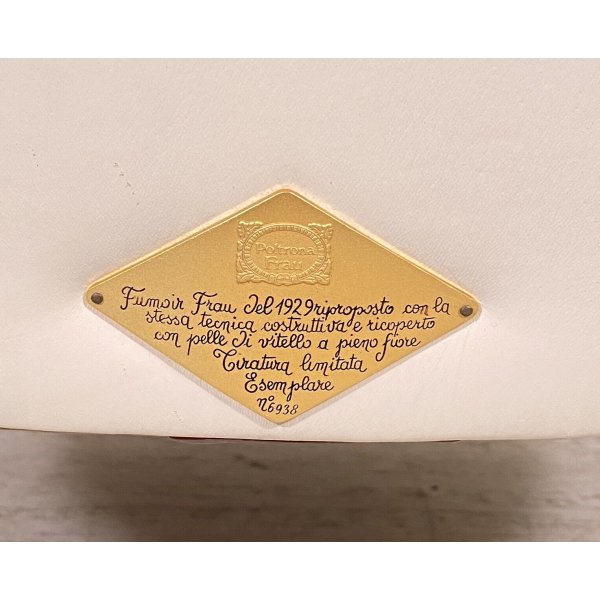 Poltrona
Frau
Fumoir Frau del 1929 riproposto con la
stessa tecnica costruttiva e ricoperto
con pelle di vitello a pieno fiore
Tiratura limitata
Esemplare
n° 6938